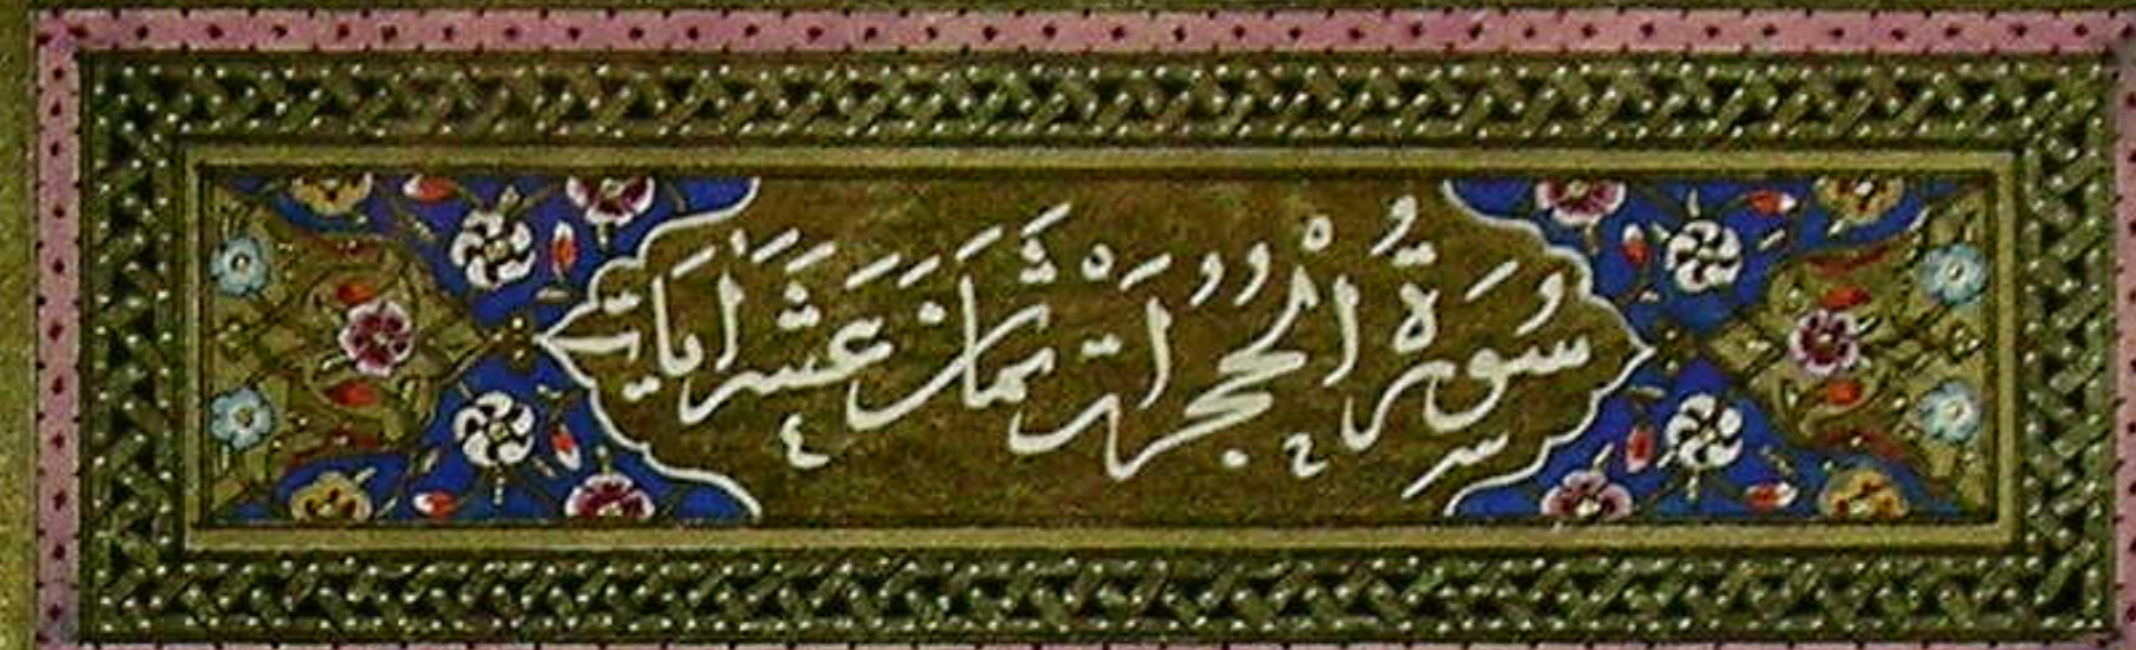 سُورَةُ الْحُجُرَاتِ ثَمَانَ عَشَرَ اٰيَاتٍ